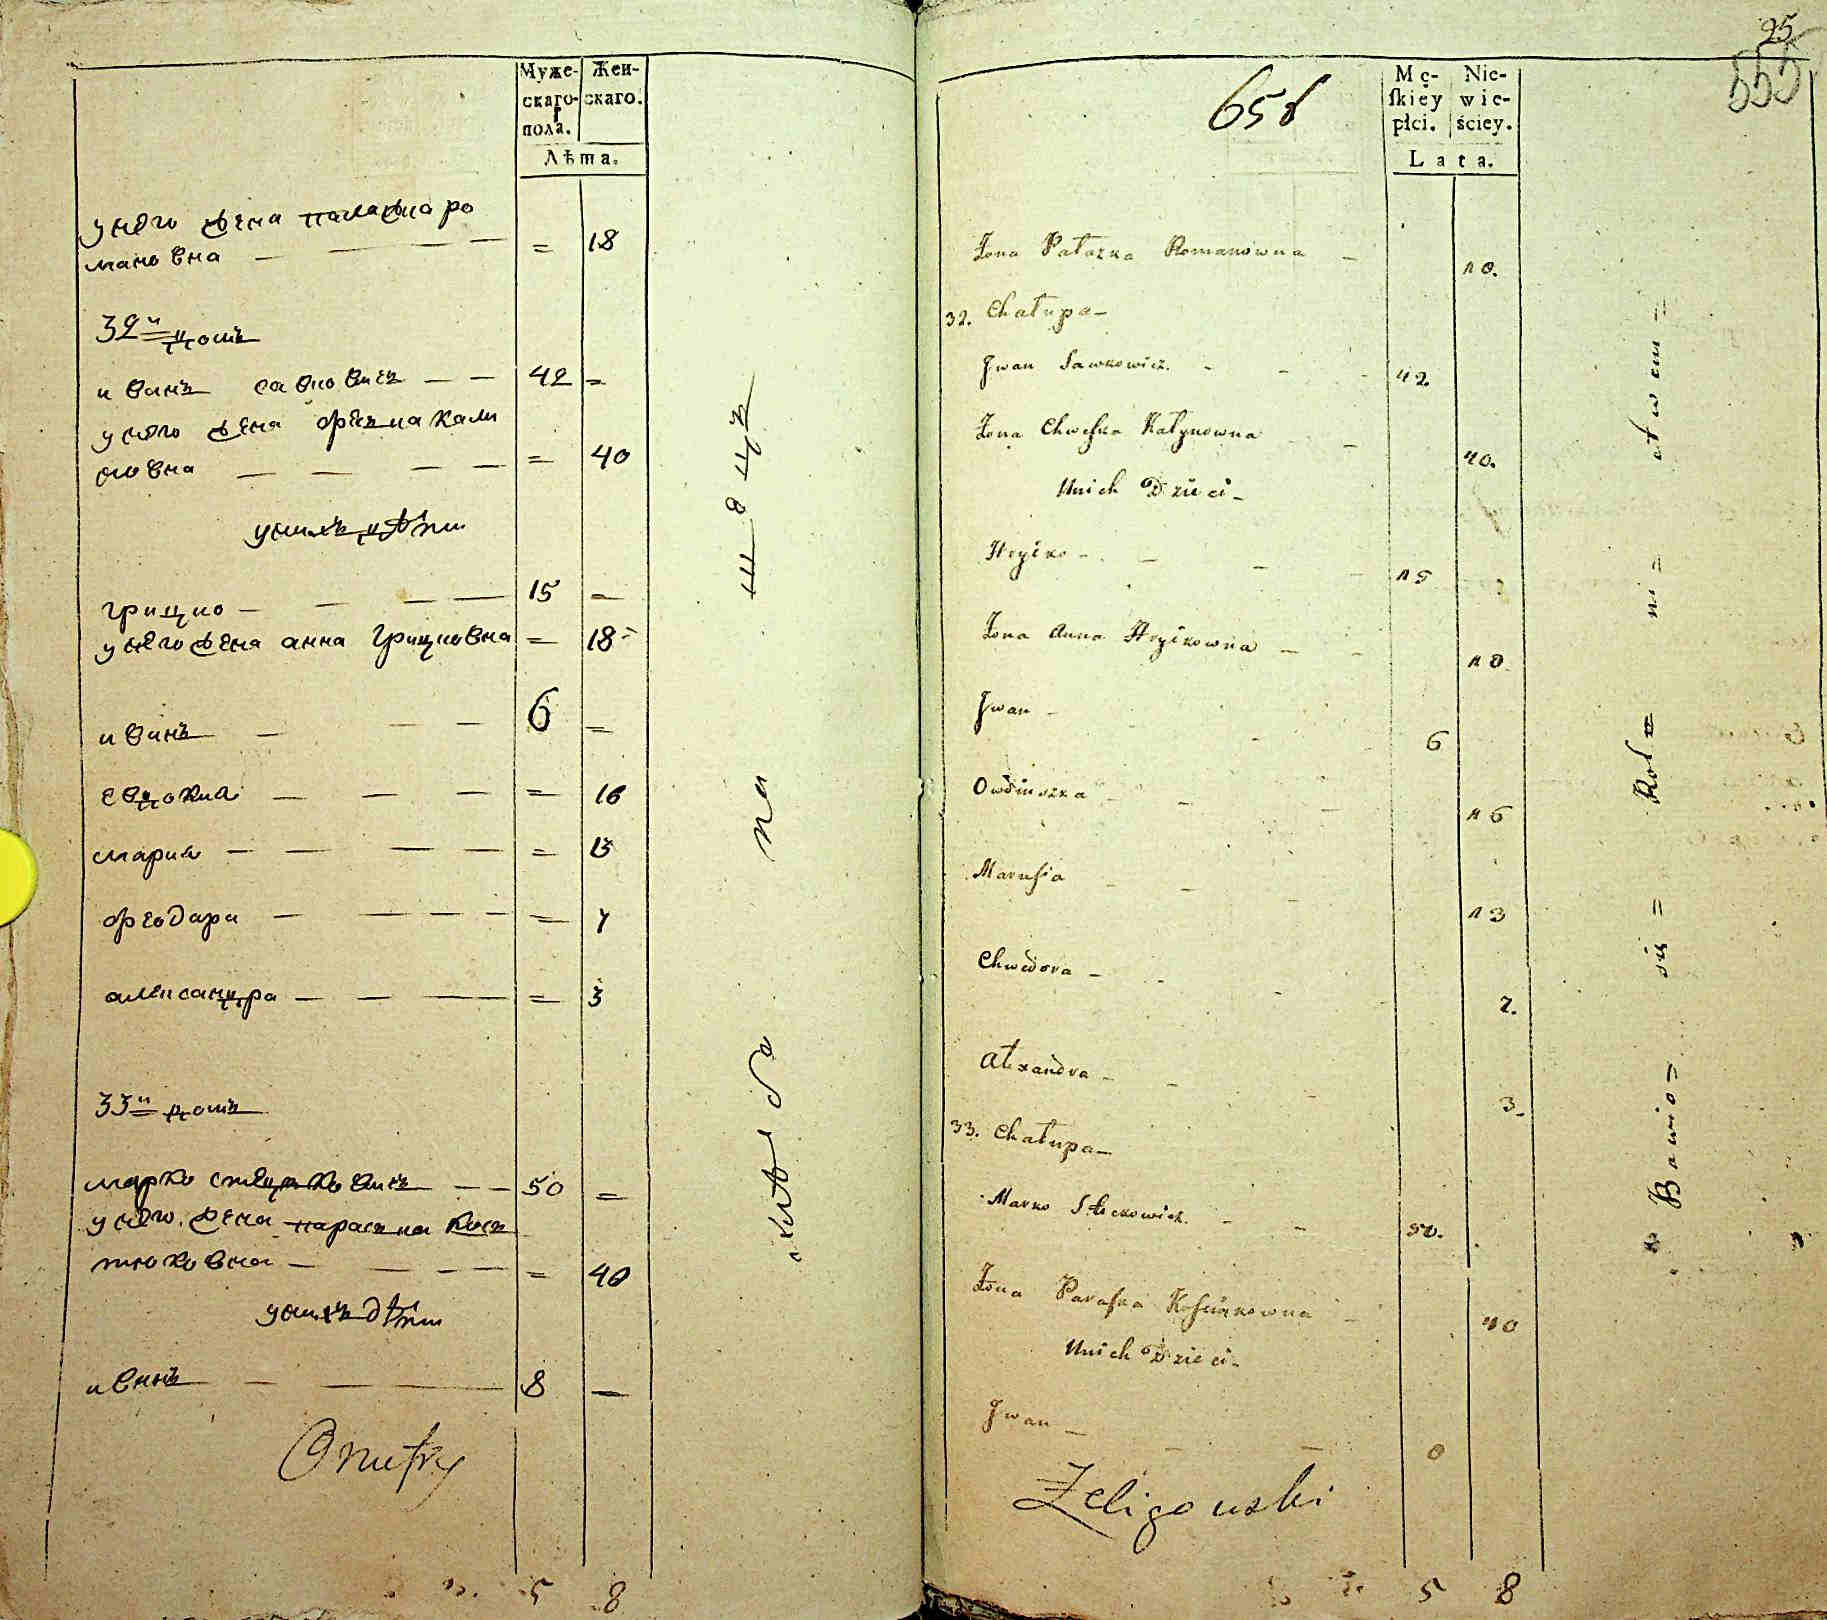 Муже-
скаго
пола.
Жен-
скаго.
Лѣта.
у него жена палажка ро
мановна — = 18
32й домъ
иванъ савковичъ — — 42 =
у него жена фѣська кали
новна — — — — = 40
у нихъ дѣти
грицко — — — — 15 —
у него жена анна грицковна = 18
иванъ — — — 6 —
евдокия — — — = 16
мария — — — — = 13
феодора — — — — = 7
александра — — — = 3
33й домъ
марко стецковичъ — — 50 =
у него жена параська кось
тюковна — — — — = 40
у нихъ дѣти
иванъ — — 8 —
Onufry
5 8
25
555
658
Mę-
ſkiey
płci.
Nie-
wie-
ściey.
Lata.
Żona Pałazka Romanowna — 18.
32. Chałupa —
Jwan Sawkowicz. - - - 42
Żona Chweśka Kałynowna — 40.
Unich Dzieci —
Hryćko - — — — 15
Żona Anna Hryćkowna — — 18
Jwan — 6
Owdiuszka — — — 16
Maruſia — — — 13
Chwedora — — 7.
Alexandra — — 3.
33. Chałupa —
Marko Steckowicz. — — 50.
Żona Paraſka Koſciukowna — 40
Unich Dzieci —
Jwan — — — 8
Żeligowski
5 8
Bawio= się= Rol= ni= ctwem=